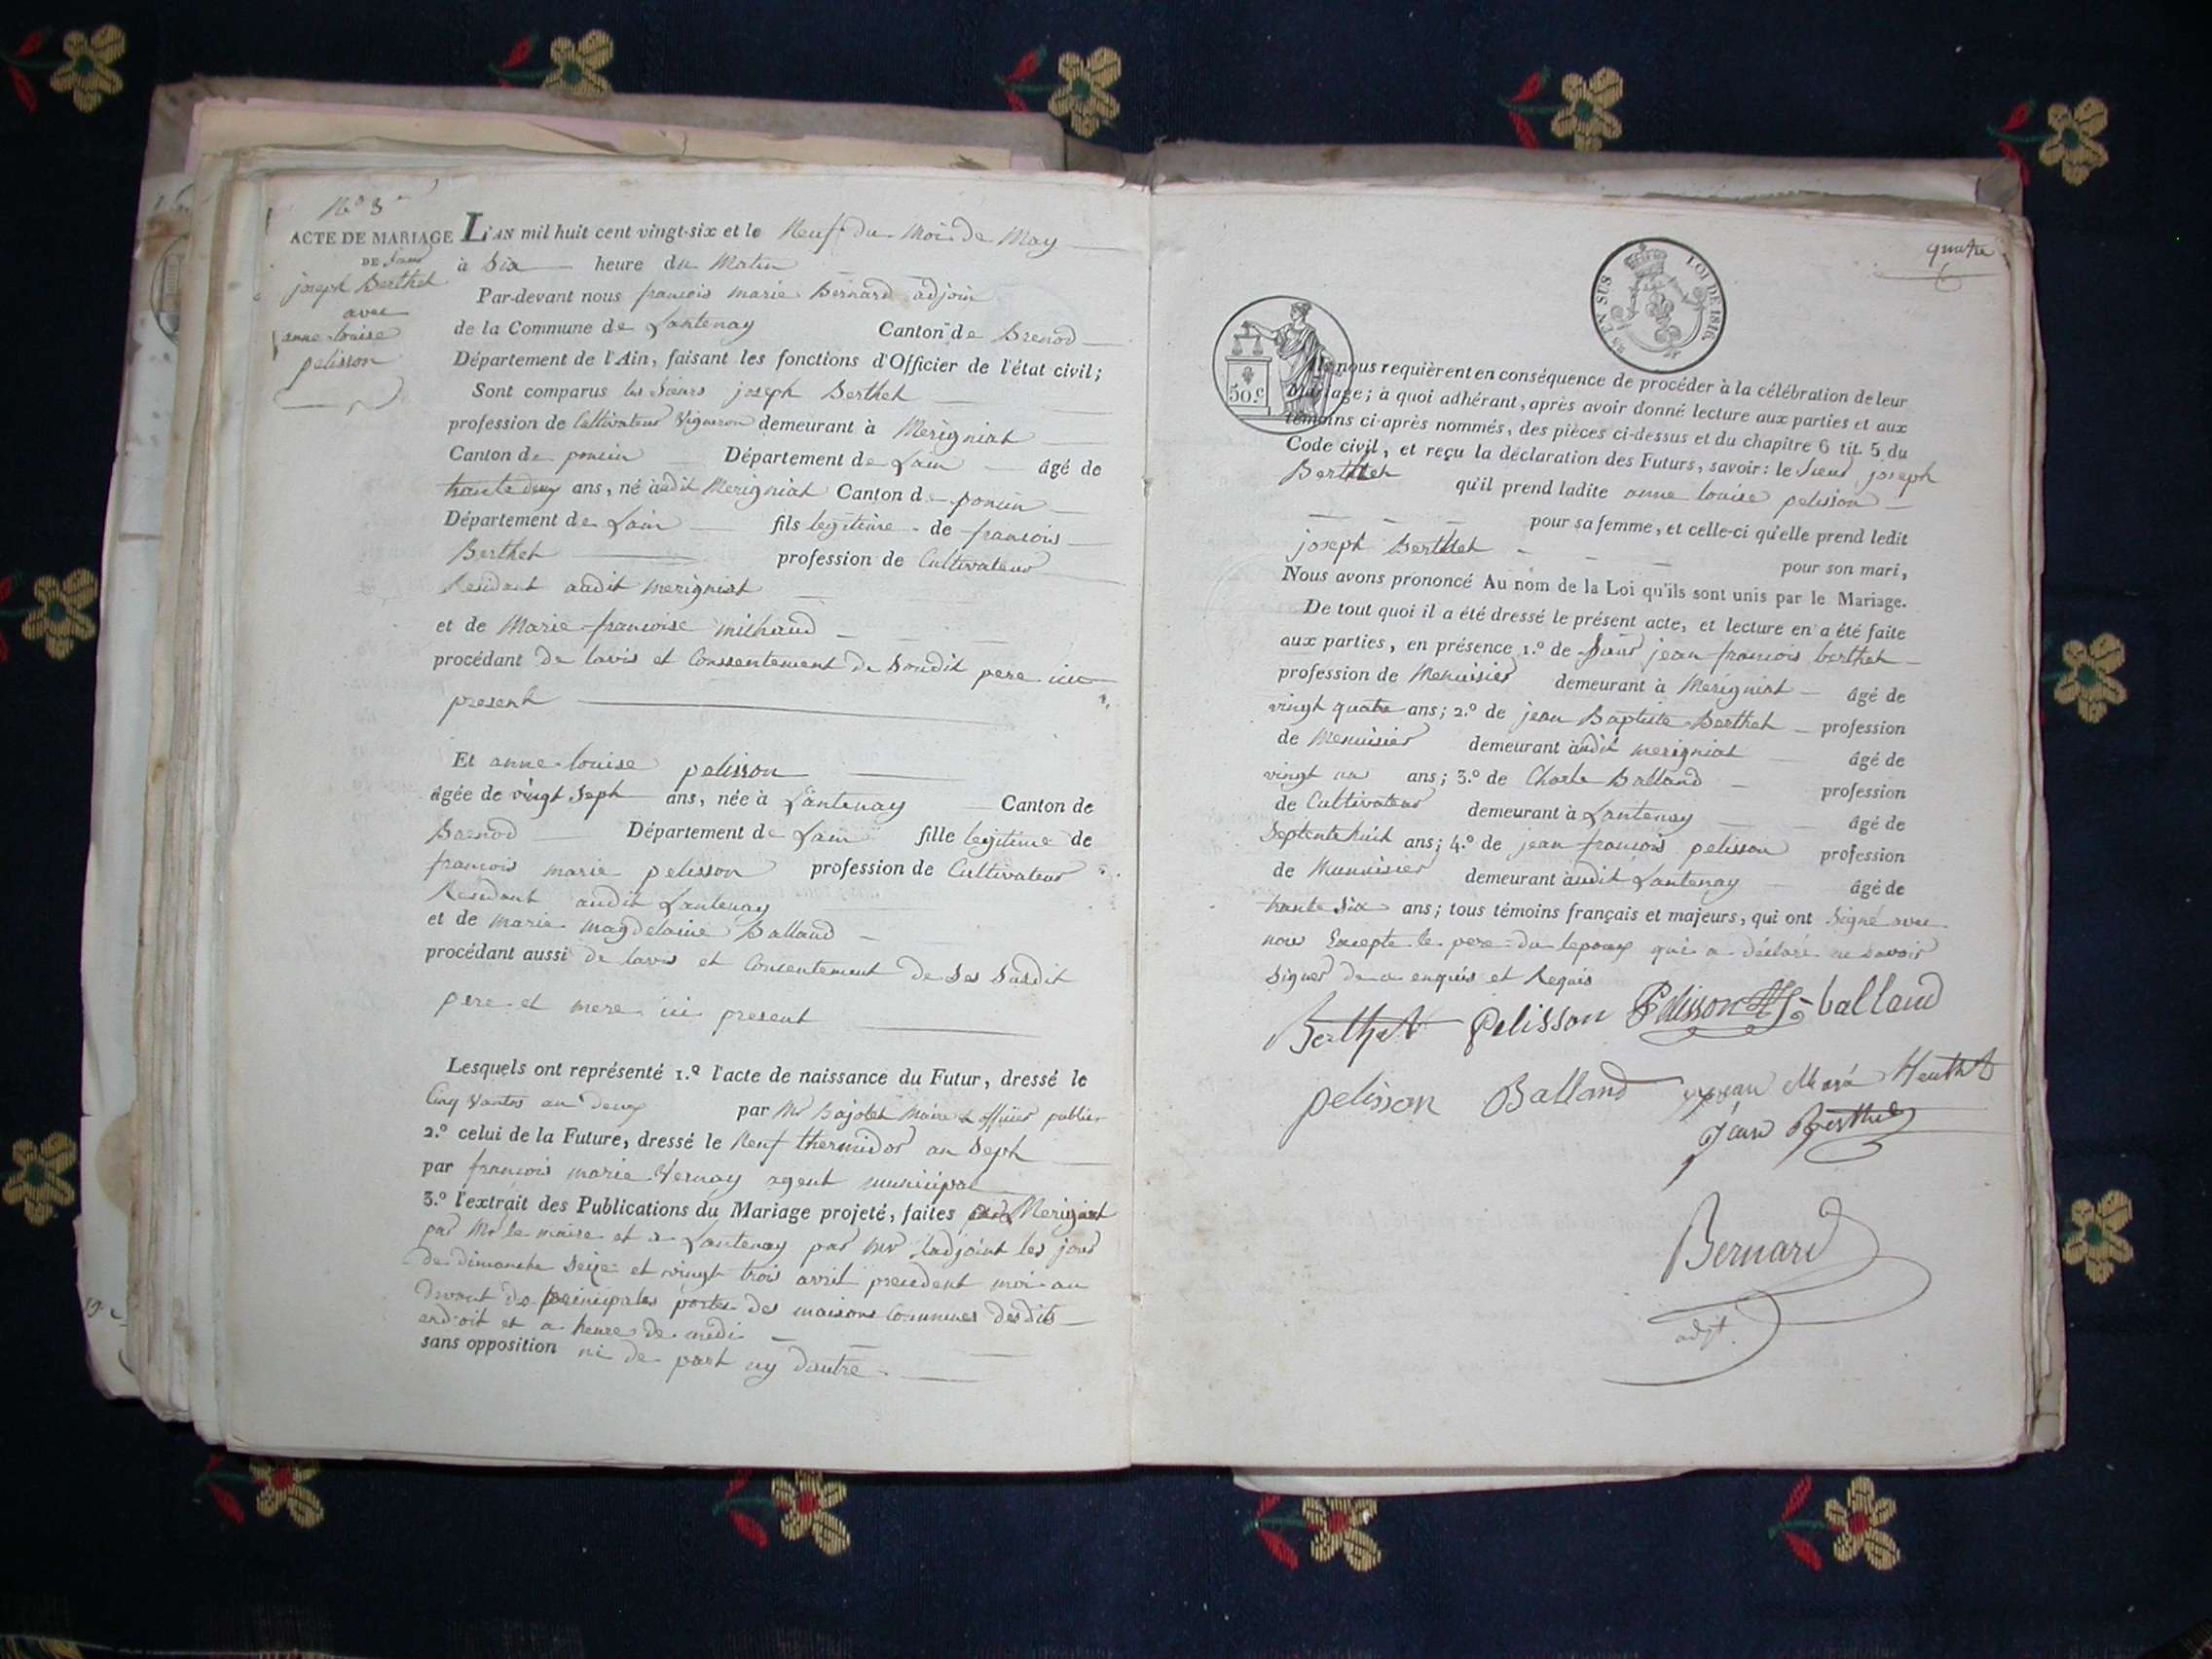 No 3
ACTE DE MARIAGE
DE Sieur
joseph Berthet
avec
anne louise
pelisson
L'AN mil huit cent vingt-six et le Neuf du Mois de May
à Six heure du Matin
Par-devant nous francois marie Bernard adjoin
de la Commune de Lantenay Canton de Brenod
Département de l'Ain, faisant les fonctions d'Officier de l'état civil;
Sont comparus les Sieurs joseph Berthet
profession de Cultivateur Vigneron demeurant à Merigniat
Canton de poncin Département de Lain âgé de
trante deux ans, né audit Merigniat Canton de poncin
Département de Lain fils legitime de francois
Berthet profession de Cultivateur
Residant audit merigniat
et de Marie francoise milhaud
procédant de lavis et Conssentement de Soudit pere ici
present
Et anne louise pelisson
âgée de vingt Sept ans, née à Lantenay Canton de
Brenod Département de Lain fille legitime de
francois marie pelisson profession de Cultivateur
Residant audit Lantenay
et de marie magdelaine Balland
procédant aussi de lavis et Consentement de Ses Susdit
pere et mere ici present
Lesquels ont représenté 1.º l'acte de naissance du Futur, dressé le
Cinq Vantos an deux par Mr Bajolet Maire & officier public
2.º celui de la Future, dressé le Neuf thermidor an Sept
par francois marie Vernay agent municipal
3.º l'extrait des Publications du Mariage projeté, faites Merigniat
par Mr le maire et a Lantenay par Mr Ladjoint les jour
de dimanche Seize et vingt trois avril precedent moi au
devant des principales portes des maisons Communes desdits
endroit et a heure de midi
sans opposition ni de part ny dautre
quatre
EN SUS
LOI DE 1816
50.c
nous requièrent en conséquence de procéder à la célébration de leur
Mariage; à quoi adhérant, après avoir donné lecture aux parties et aux
témoins ci-après nommés, des pièces ci-dessus et du chapitre 6 tit. 5 du
Code civil, et reçu la déclaration des Futurs, savoir: le Sieur joseph
Berthet qu'il prend ladite anne louise pelisson
pour sa femme, et celle-ci qu'elle prend ledit
joseph Berthet pour son mari,
Nous avons prononcé Au nom de la Loi qu'ils sont unis par le Mariage.
De tout quoi il a été dressé le présent acte, et lecture en a été faite
aux parties, en présence 1.º de Sieur jean francois berthet
profession de Menuisier demeurant à Merigniat âgé de
vingt quatre ans; 2.º de jean Baptiste Berthet profession
de Menuisier demeurant audit merigniat âgé de
vingt un ans; 3.º de Charle Balland profession
de Cultivateur demeurant à Lantenay âgé de
Septente huit ans; 4.º de jean francois pelisson profession
de Munuisier demeurant audit Lantenay âgé de
trante Six ans; tous témoins français et majeurs, qui ont Signé avec
nous Excepte le pere du lepoux qui a déclaré ne Savoir
Signer de ce enquis et Requis
Berthet Pelisson Pelisson balland
pelisson Balland
Jean Berthet
Bernard
adjt.